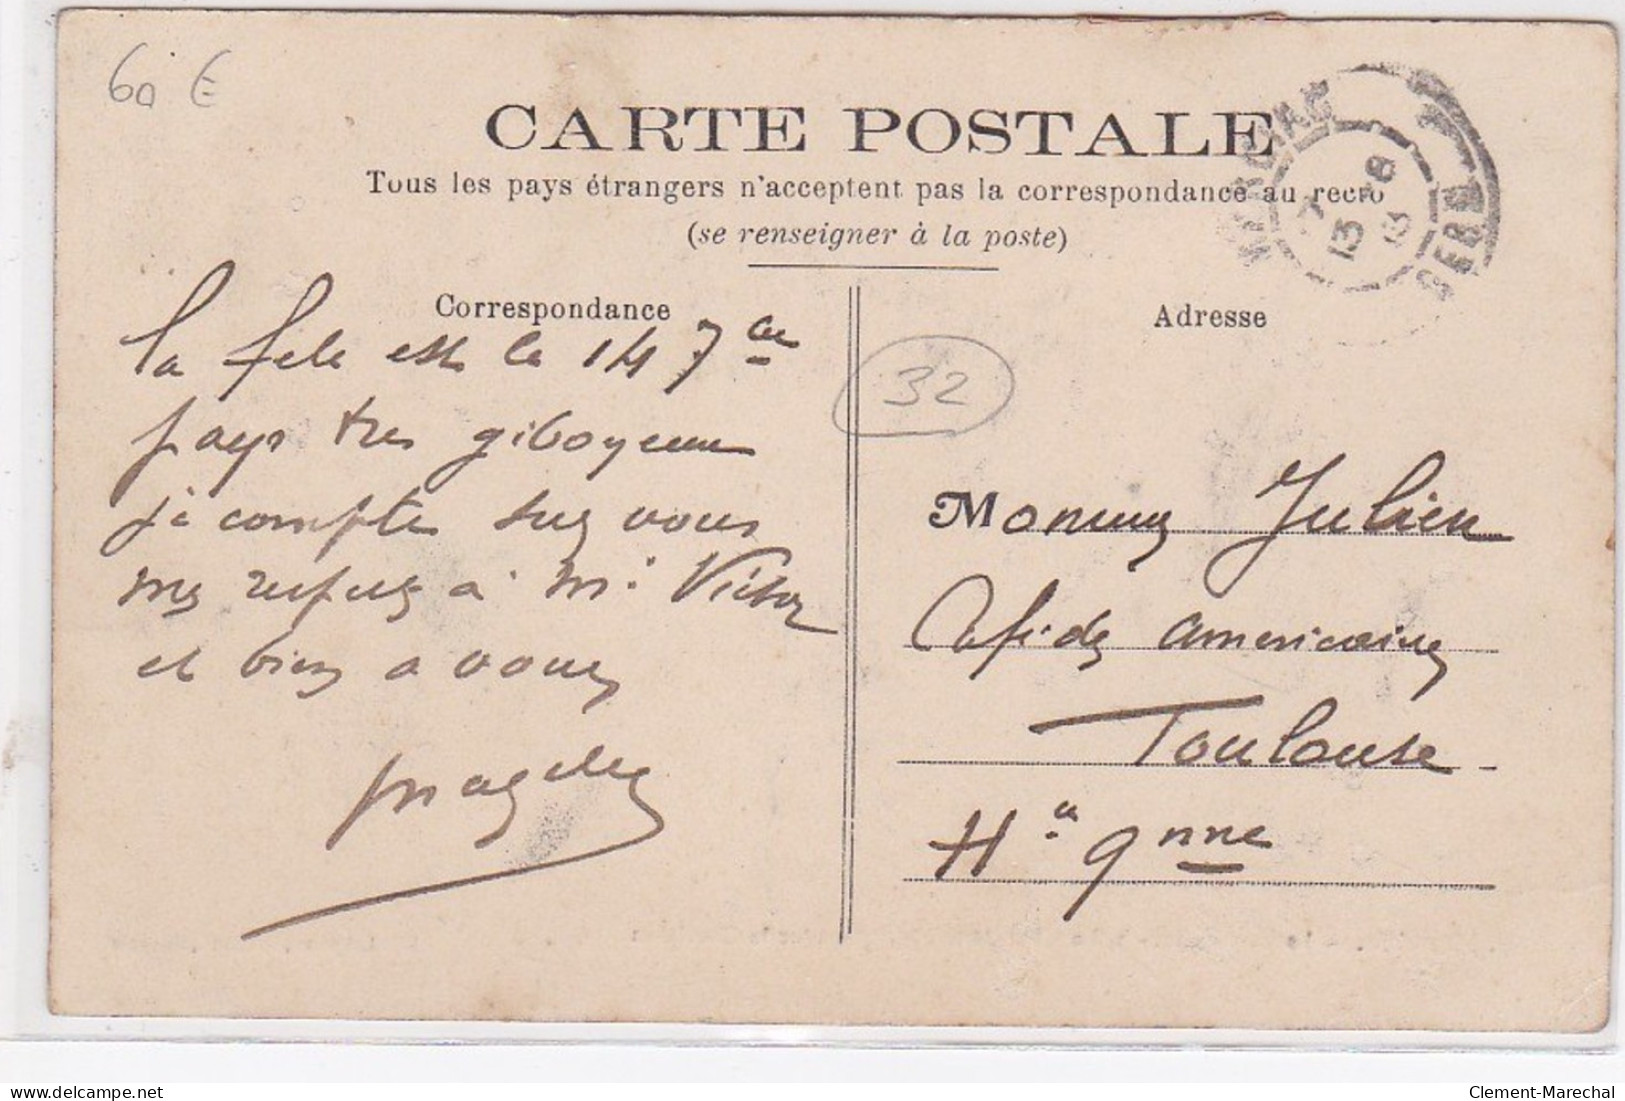 60 €
CARTE POSTALE
Tous les pays étrangers n'acceptent pas la correspondance au recto
(se renseigner à la poste)
Correspondance
la fete est le 14 7bre
pays tres giboyeux
je compte sur vous
mr Victor
et bien a vous
Adresse
32
Monsieur Julien
Café des americains
Toulouse
Hte Gnne
MARCIAC
GERS
13
Clement-Marechal
delcampe.net